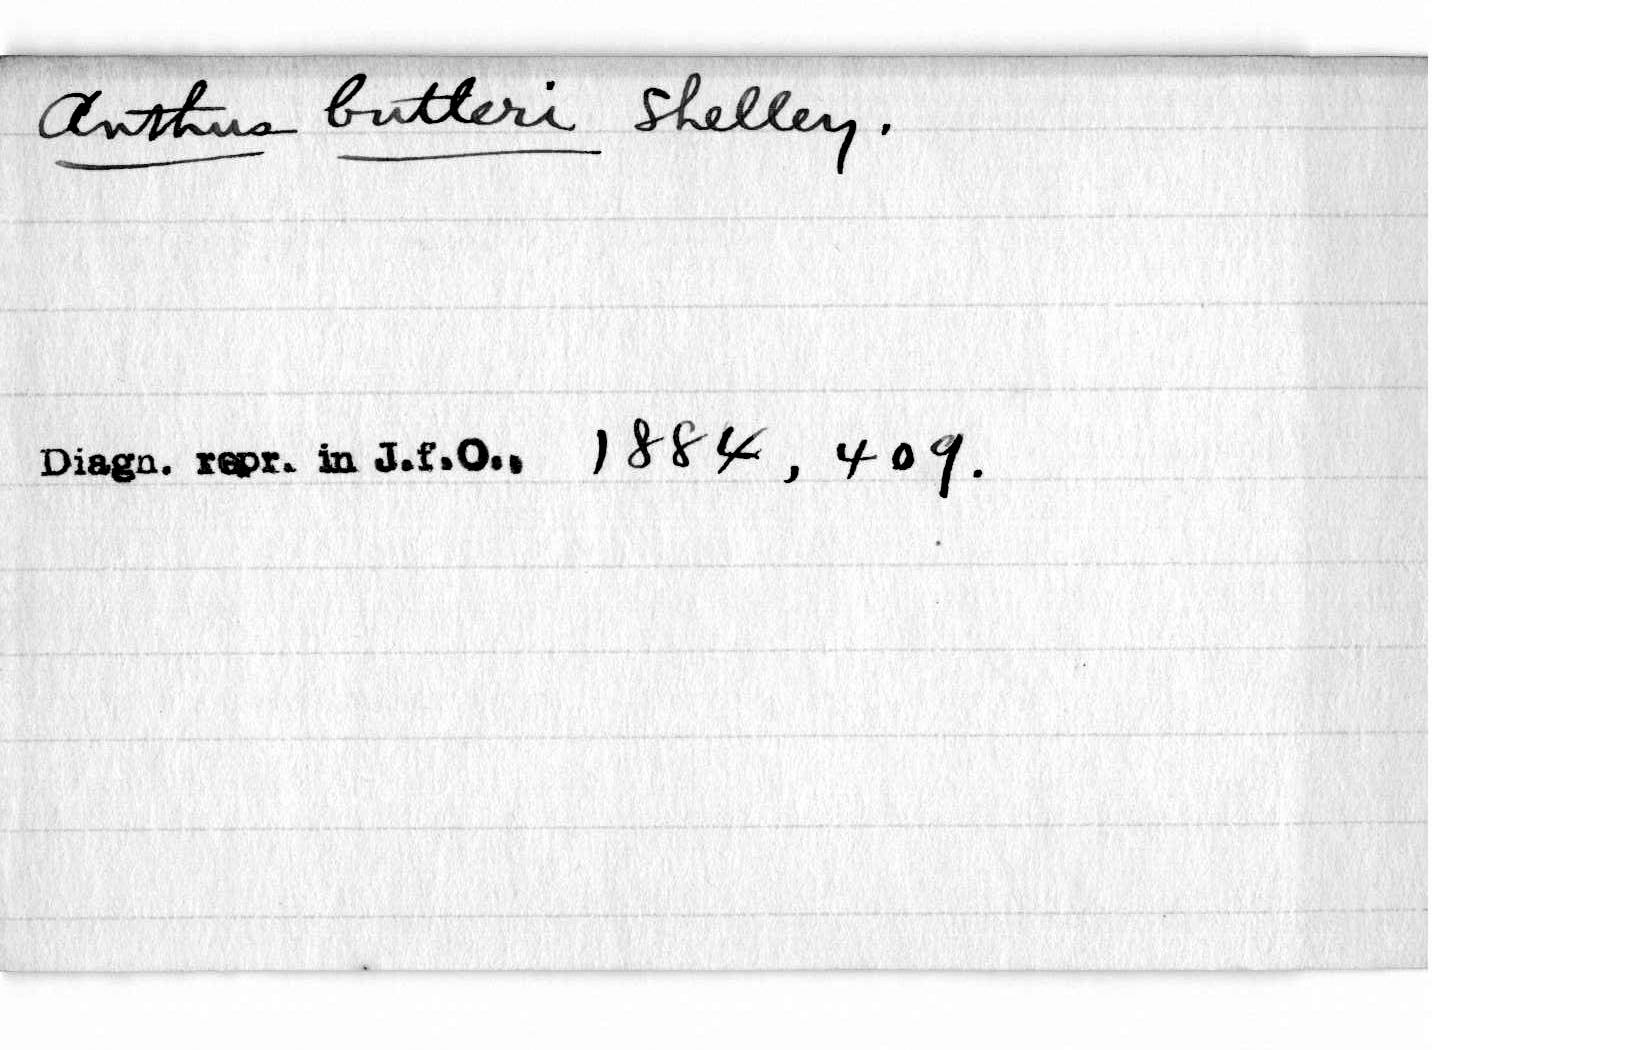 Anthus butleri Shelley.
Diagn. repr. in J.f.O., 1884, 409.